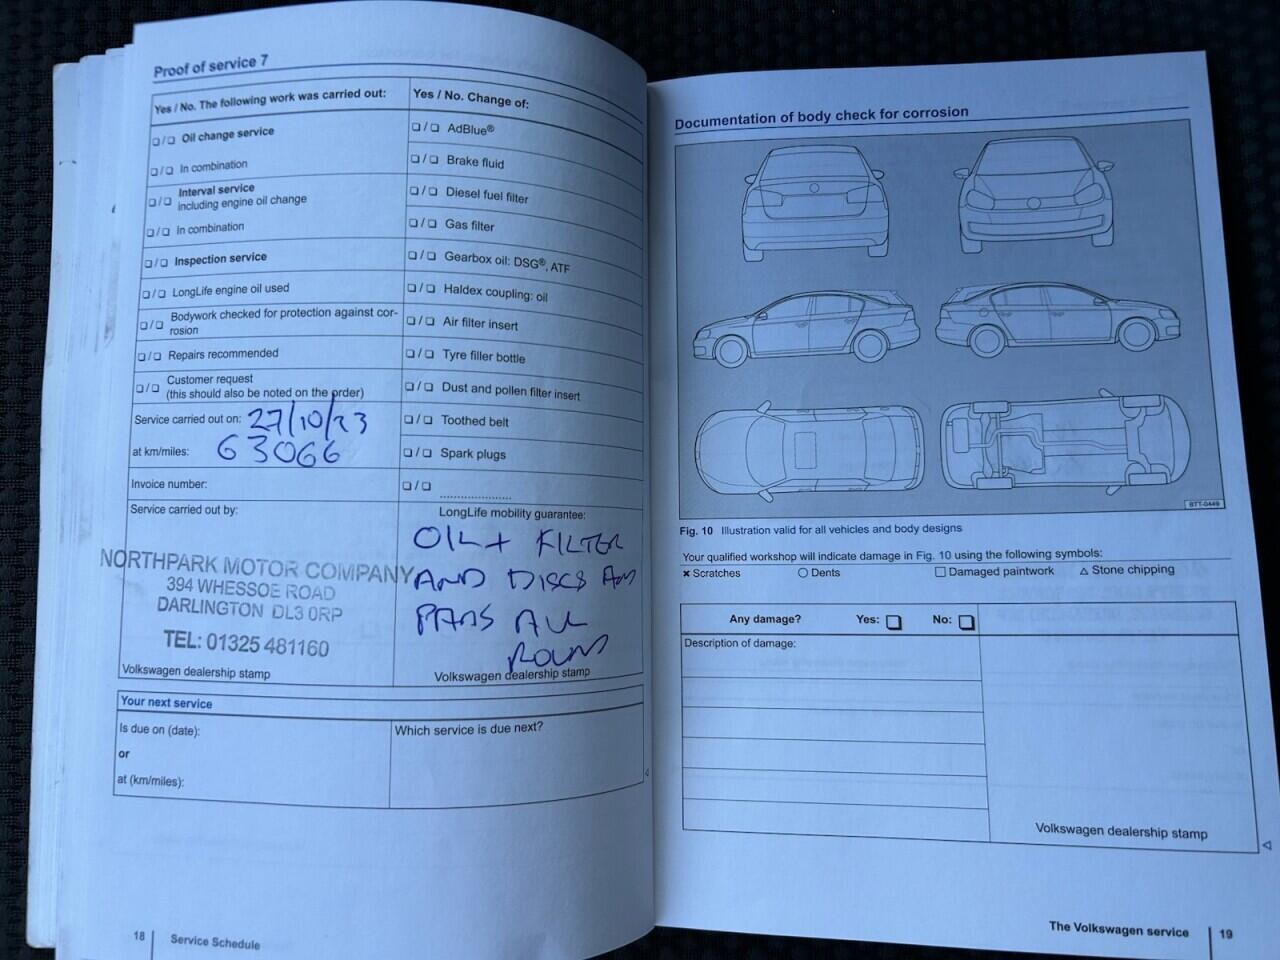 Proof of service 7
Yes / No. The following work was carried out:
❑ / ❑ Oil change service
❑ / ❑ In combination
❑ / ❑ Interval service
including engine oil change
❑ / ❑ In combination
❑ / ❑ Inspection service
❑ / ❑ LongLife engine oil used
❑ / ❑ Bodywork checked for protection against cor-
rosion
❑ / ❑ Repairs recommended
❑ / ❑ Customer request
(this should also be noted on the order)
Service carried out on: 27/10/23
at km/miles: 63066
Invoice number:
Service carried out by:
NORTHPARK MOTOR COMPANY
394 WHESSOE ROAD
DARLINGTON DL3 0RP
TEL: 01325 481160
Volkswagen dealership stamp
Yes / No. Change of:
❑ / ❑ AdBlue®
❑ / ❑ Brake fluid
❑ / ❑ Diesel fuel filter
❑ / ❑ Gas filter
❑ / ❑ Gearbox oil: DSG®, ATF
❑ / ❑ Haldex coupling: oil
❑ / ❑ Air filter insert
❑ / ❑ Tyre filler bottle
❑ / ❑ Dust and pollen filter insert
❑ / ❑ Toothed belt
❑ / ❑ Spark plugs
❑ / ❑ ....................
LongLife mobility guarantee:
OIL + FILTER
AND DISCS AND
PADS ALL
ROUND
Volkswagen dealership stamp
Your next service
Is due on (date):
or
at (km/miles):
Which service is due next?
18 Service Schedule
Documentation of body check for corrosion
BTT-0449
Fig. 10 Illustration valid for all vehicles and body designs
Your qualified workshop will indicate damage in Fig. 10 using the following symbols:
× Scratches ○ Dents □ Damaged paintwork △ Stone chipping
Any damage? Yes: ❑ No: ❑
Description of damage:
Volkswagen dealership stamp
The Volkswagen service 19